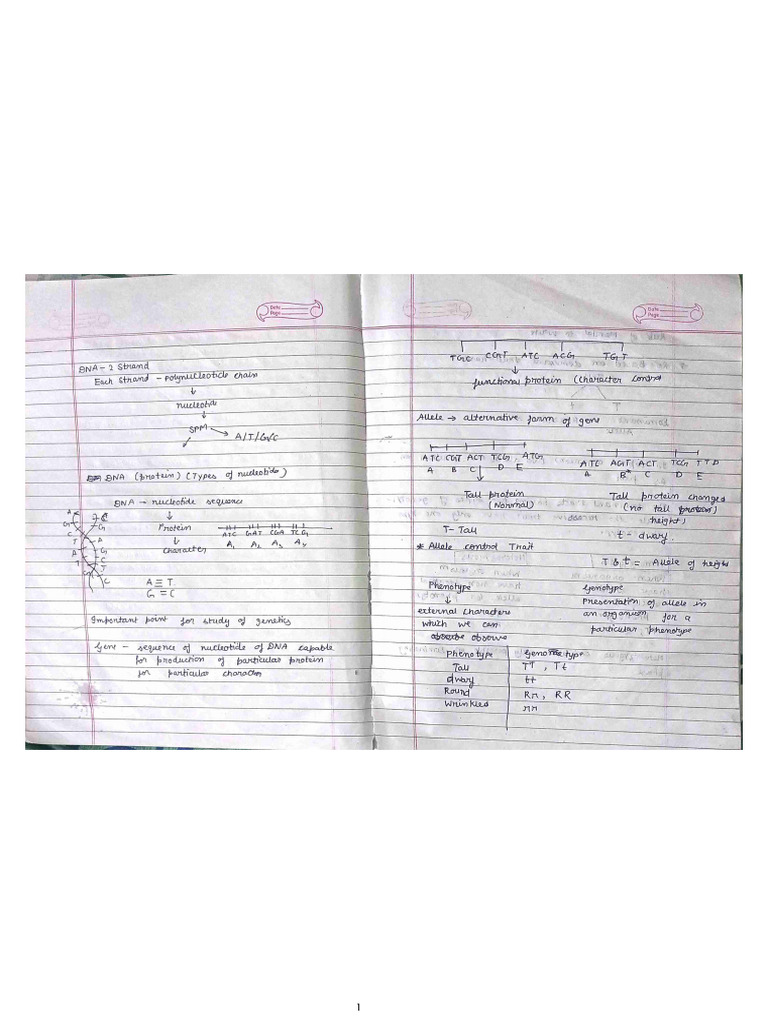 Date
Page
DNA - 2 Strand
Each Strand - Polynucleotide chain
↓
nucleotide
↓
SPM → A/T/G/C
DNA (protein) (Types of nucleotide)
DNA → nucleotide sequence
↓
Protein
ATC GAT CGA TCG
↓
character
A₁ A₂ A₃ A₄
A ≡ T
G = C
Important point for study of genetics
Gene - sequence of nucleotide of DNA capable
for production of particular protein
for particular character
Date
Page
TGC CGT ATC ACG TGT
↓
functional protein (character control
Allele → alternative form of gene
ATC CGT ACT TCG ATG
A B C D E
ATC AGT ACT TCG
A B* C D E
Tall protein
(Normal)
Tall protein changed
(no tall protein)
height)
T - Tall
t - dwarf.
* Allele control Trait
T & t = Allele of height
Phenotype
↓
external characters
which we can
observe
Genotype
Presentation of allele in
an organism for a
particular phenotype
Phenotype Genotype
Tall TT, Tt
dwarf tt
Round Rr, RR
Wrinkled rr
1